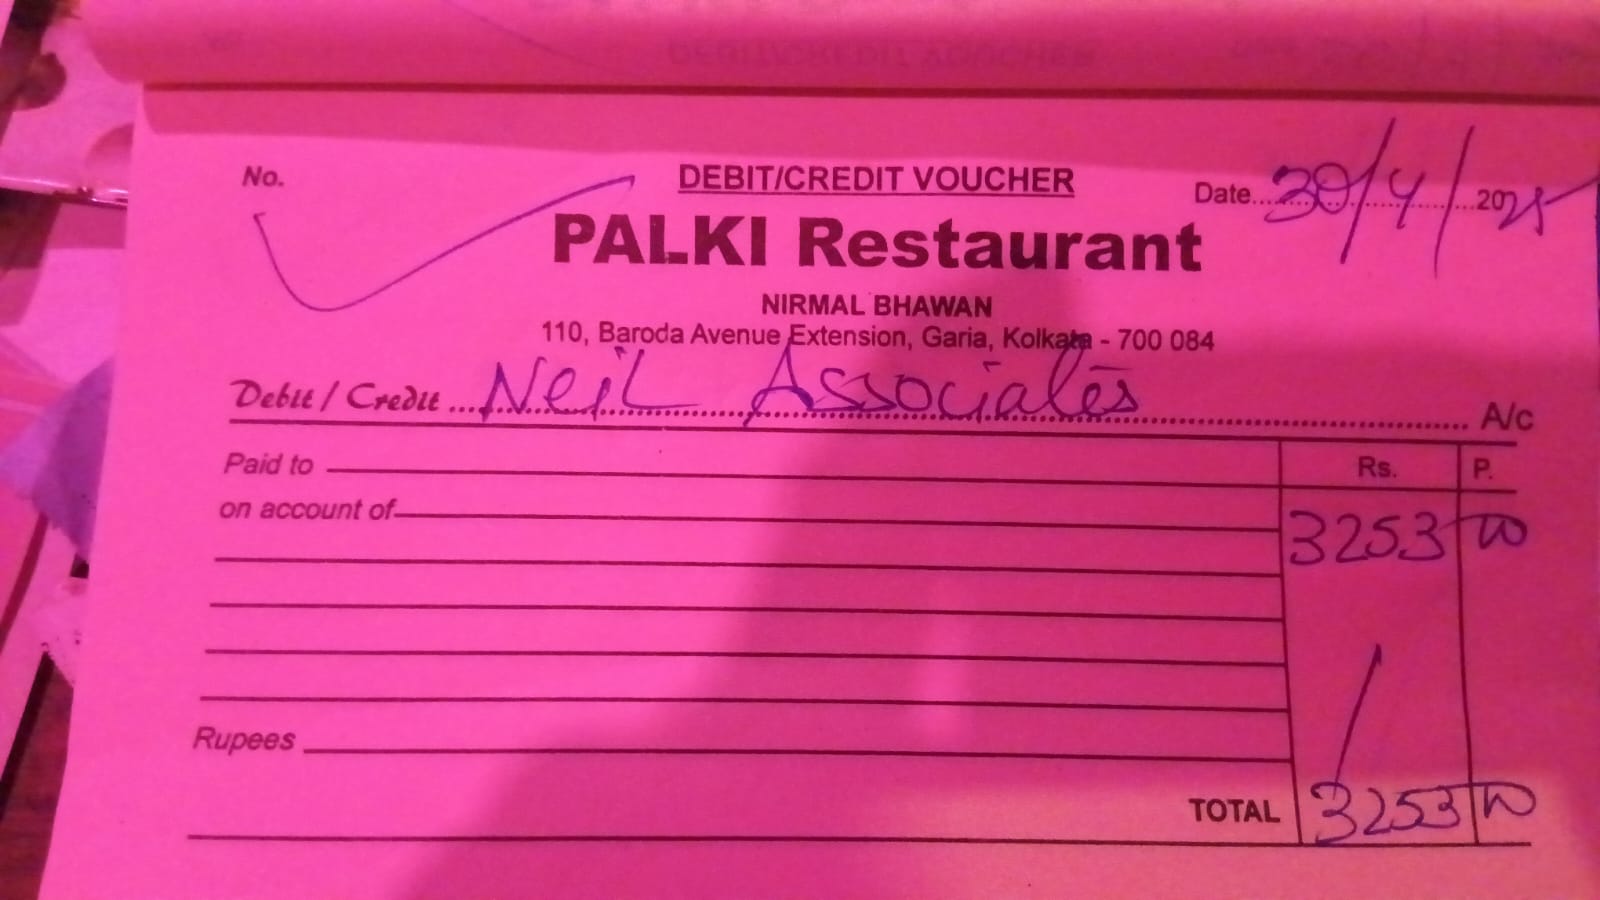 DEBIT/CREDIT VOUCHER
No.
Date 30/4/2025
PALKI Restaurant
NIRMAL BHAWAN
110, Baroda Avenue Extension, Garia, Kolkata - 700 084
Debit / Credit Neil Associates A/c
Paid to Rs. P.
on account of 3253 00
Rupees
TOTAL 3253 00